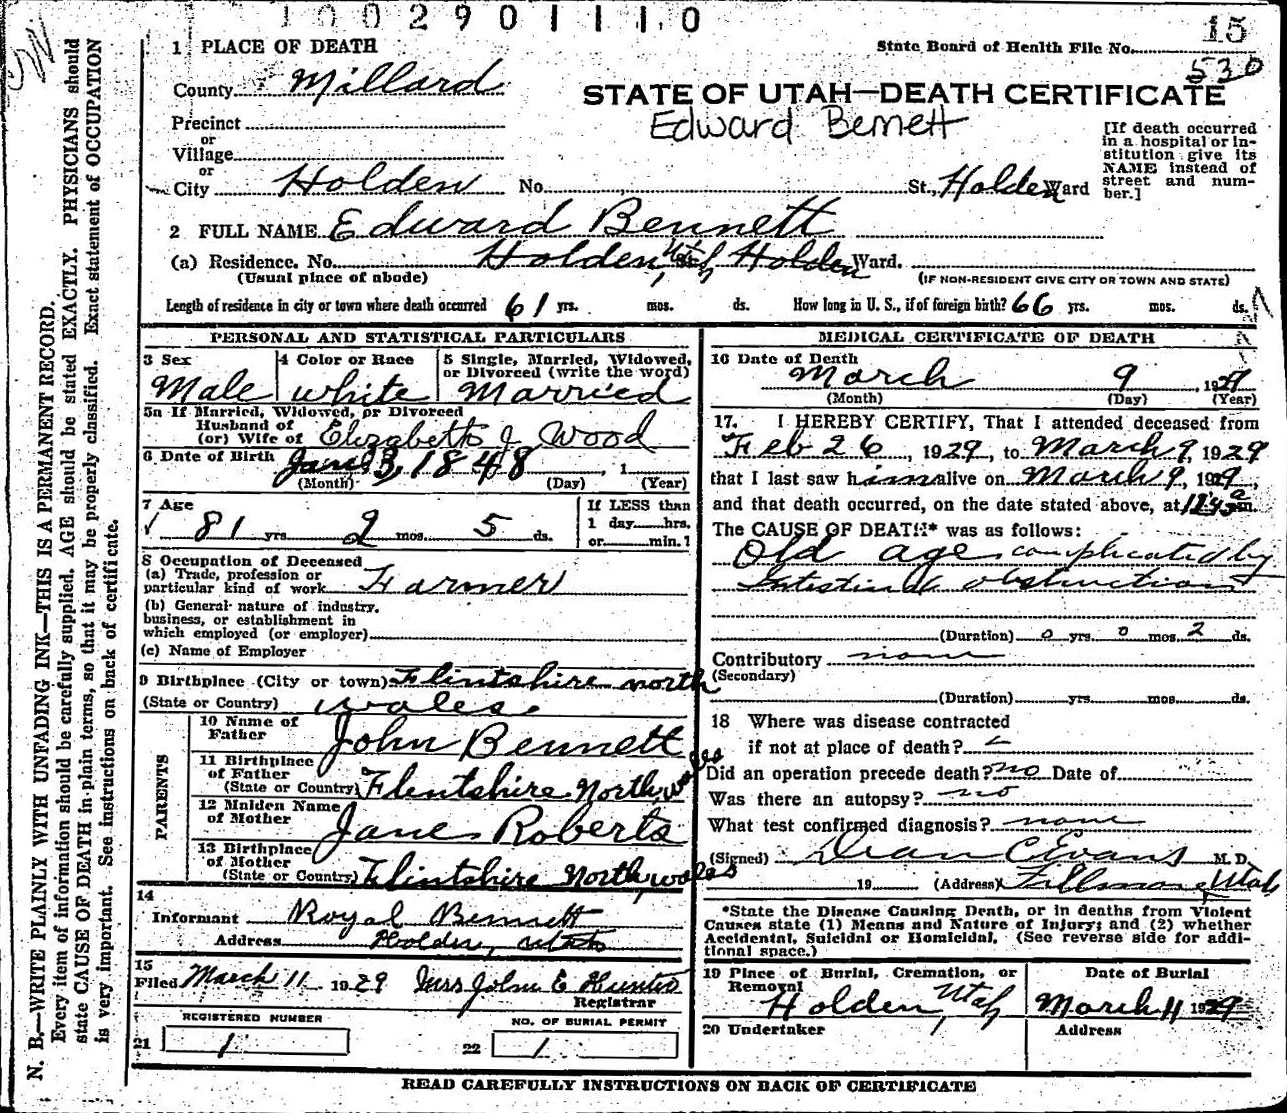 1002901110
15
1 PLACE OF DEATH
State Board of Health File No.
530
County Millard
STATE OF UTAH—DEATH CERTIFICATE
Edward Bennett
Precinct
or
Village
or
City Holden No. St., Holden Ward
[If death occurred
in a hospital or in-
stitution give its
NAME instead of
street and num-
ber.]
2 FULL NAME Edward Bennett
(a) Residence. No. Holden, Utah Holden Ward.
(Usual place of abode) (IF NON-RESIDENT GIVE CITY OR TOWN AND STATE)
Length of residence in city or town where death occurred 61 yrs. mos. ds. How long in U. S., if of foreign birth? 66 yrs. mos. ds.
PERSONAL AND STATISTICAL PARTICULARS
3 Sex
Male
4 Color or Race
white
5 Single, Married, Widowed,
or Divorced (write the word)
Married
5a If Married, Widowed, or Divorced
Husband of
(or) Wife of Elizabeth J. Wood
6 Date of Birth Jan. 3, 1848, 1
(Month) (Day) (Year)
7 Age
81 yrs. 2 mos. 5 ds.
If LESS than
1 day hrs.
or min.?
8 Occupation of Deceased
(a) Trade, profession or
particular kind of work Farmer
(b) General nature of industry,
business, or establishment in
which employed (or employer)
(c) Name of Employer
9 Birthplace (City or town) Flintshire north
(State or Country) wales.
PARENTS
10 Name of
Father John Bennett
11 Birthplace
of Father
(State or Country) Flintshire North, Wales
12 Maiden Name
of Mother Jane Roberts
13 Birthplace
of Mother
(State or Country) Flintshire North, wales
14
Informant Royal Bennett
Address Holden, Utah
15
Filed March 11 1929 Mrs John E Hunter
Registrar
REGISTERED NUMBER
21 1
NO. OF BURIAL PERMIT
22 1
MEDICAL CERTIFICATE OF DEATH
16 Date of Death
March 9, 1929
(Month) (Day) (Year)
17. I HEREBY CERTIFY, That I attended deceased from
Feb 26, 1929, to March 9, 1929
that I last saw him alive on March 9, 1929,
and that death occurred, on the date stated above, at m.
The CAUSE OF DEATH* was as follows:
Old age complicated by
Intestinal obstruction
(Duration) 0 yrs. 0 mos. 2 ds.
Contributory none
(Secondary)
(Duration) yrs. mos. ds.
18 Where was disease contracted
if not at place of death?
Did an operation precede death? no Date of
Was there an autopsy? no
What test confirmed diagnosis? none
(Signed) Dean C Evans M. D.
19 (Address) Fillmore, Utah
*State the Disease Causing Death, or in deaths from Violent
Causes state (1) Means and Nature of Injury; and (2) whether
Accidental, Suicidal or Homicidal. (See reverse side for addi-
tional space.)
19 Place of Burial, Cremation, or
Removal
Holden, Utah
Date of Burial
March 11 1929
20 Undertaker Address
READ CAREFULLY INSTRUCTIONS ON BACK OF CERTIFICATE
N. B.—WRITE PLAINLY WITH UNFADING INK—THIS IS A PERMANENT RECORD.
Every item of information should be carefully supplied. AGE should be stated EXACTLY. PHYSICIANS should
state CAUSE OF DEATH in plain terms, so that it may be properly classified. Exact statement of OCCUPATION
is very important. See instructions on back of certificate.